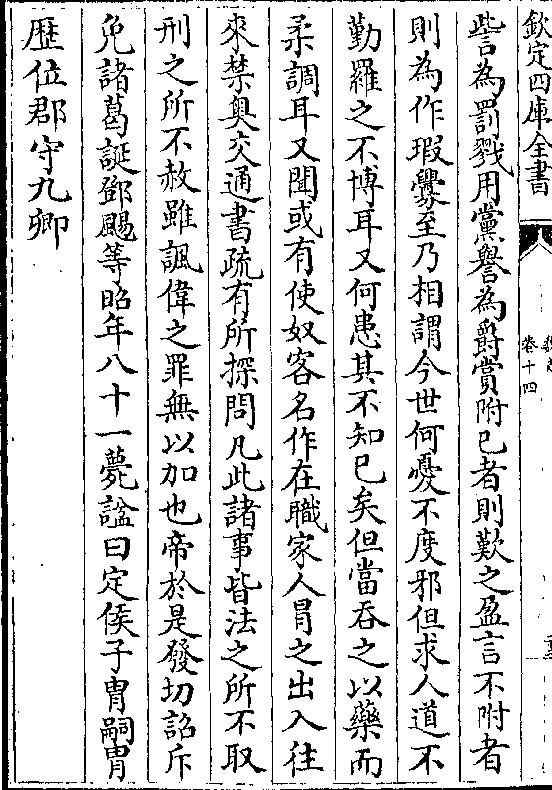 欽定四庫全書
卷十四
訾為罰戮用黨譽為爵賞附已者則歎之盈言不附者
則為作瑕釁至乃相謂今世何憂不度邪但求人道不
勤羅之不博耳又何患其不知已矣但當吞之以藥而
柔調耳又聞或有使奴客名作在職家人冒之出入往
來禁奥交通書疏有所探問凡此諸事皆法之所不取
刑之所不赦雖諷偉之罪無以加也帝於是發切詔斥
免諸葛誕鄧颺等昭年八十一薨諡曰定侯子胄嗣胄
歴位郡守九卿